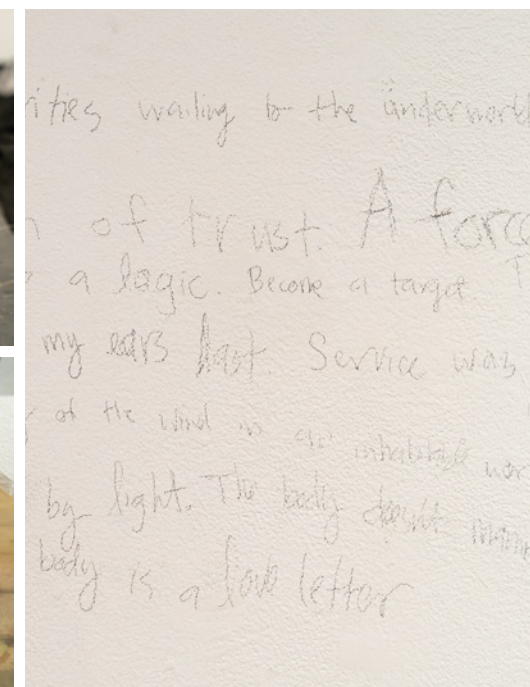 wailing to the underworld
of trust. A forc
a logic. Become a target. T
my ears last. Service was
of the wind in an inhabitable wor
by light. The body doesn't
body is a love letter